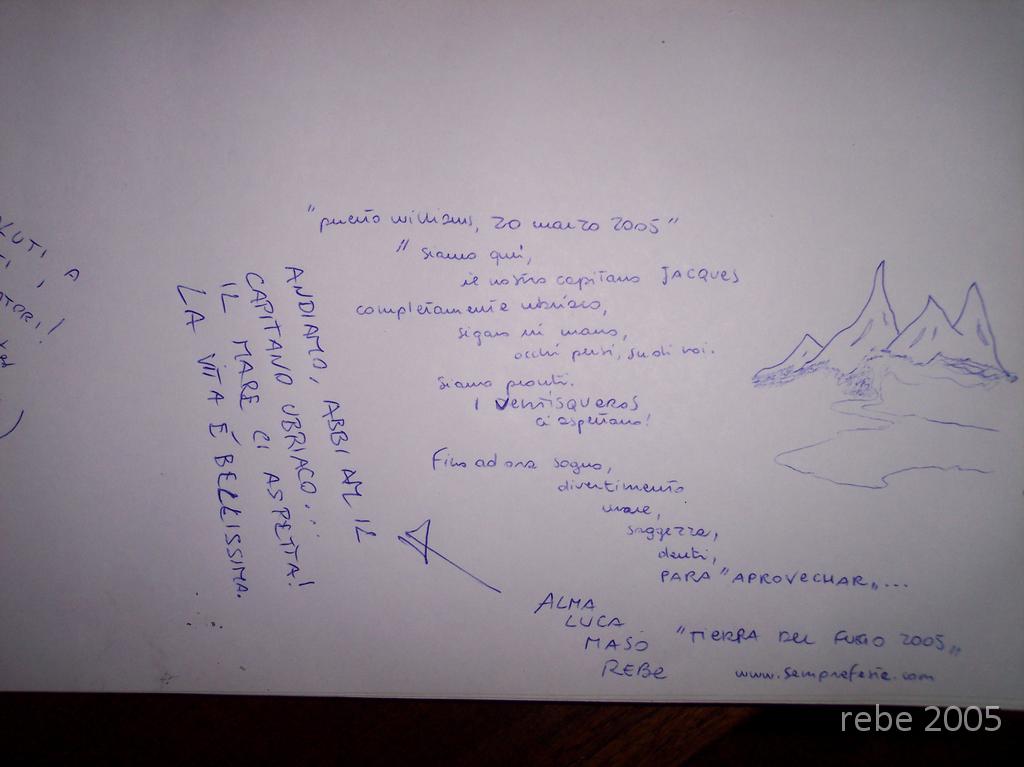 "puerto williams, 20 marzo 2005"
" siamo qui,
il nostro capitano JACQUES
completamente ubriaco,
sigaro in mano,
occhi persi, su di noi.
siamo pronti.
I VENTISQUEROS
ci aspettano!
Fino ad ora sogno,
divertimento
mare,
saggezza,
denti,
PARA "APROVECHAR„...
ALMA
LUCA
MASO
REBE
"TIERRA DEL FUEGO 2005„
www.sempreferie.com
ANDIAMO, ABBIAM IL
CAPITANO UBRIACO...
IL MARE CI ASPETTA!
LA VITA É BELLISSIMA.
rebe 2005